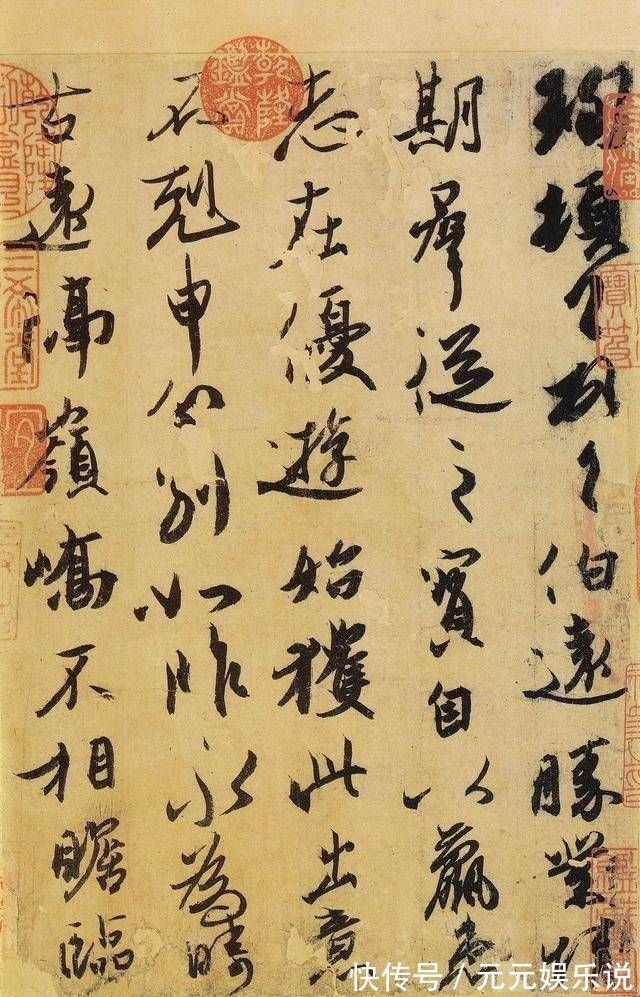 珣頓首頓首伯遠勝業情
期羣從之寳自以羸患
志在優遊始獲此出意
不剋申分别如昨永為疇
古遠隔嶺嶠不相瞻臨
乾隆鑑賞
三希堂
快传号/元元娱乐说